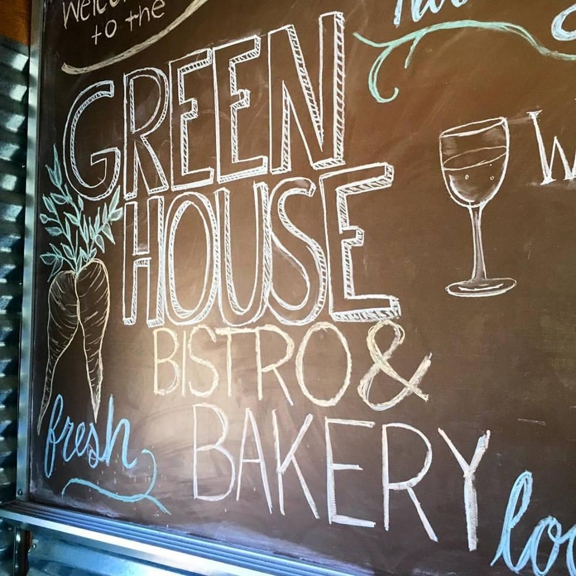 Welcome
to the
GREEN
HOUSE
BISTRO &
BAKERY
fresh